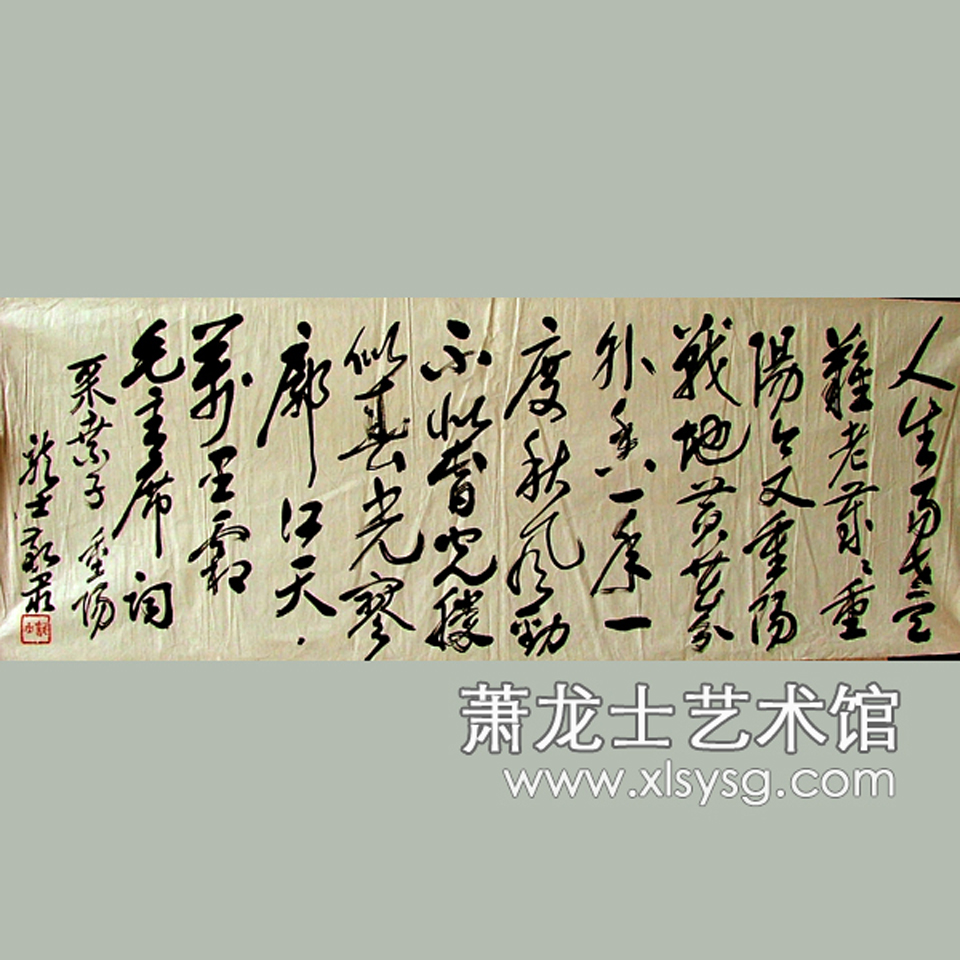 人生易老天
難老歲〻重
陽今又重陽
戰地黄花分
外香一年一
度秋風勁
不似春光勝
似春光寥
廓江天
萬里霜
毛主席詞
采桑子 重陽
龍士敬录
萧龙士艺术馆
www.xlsysg.com